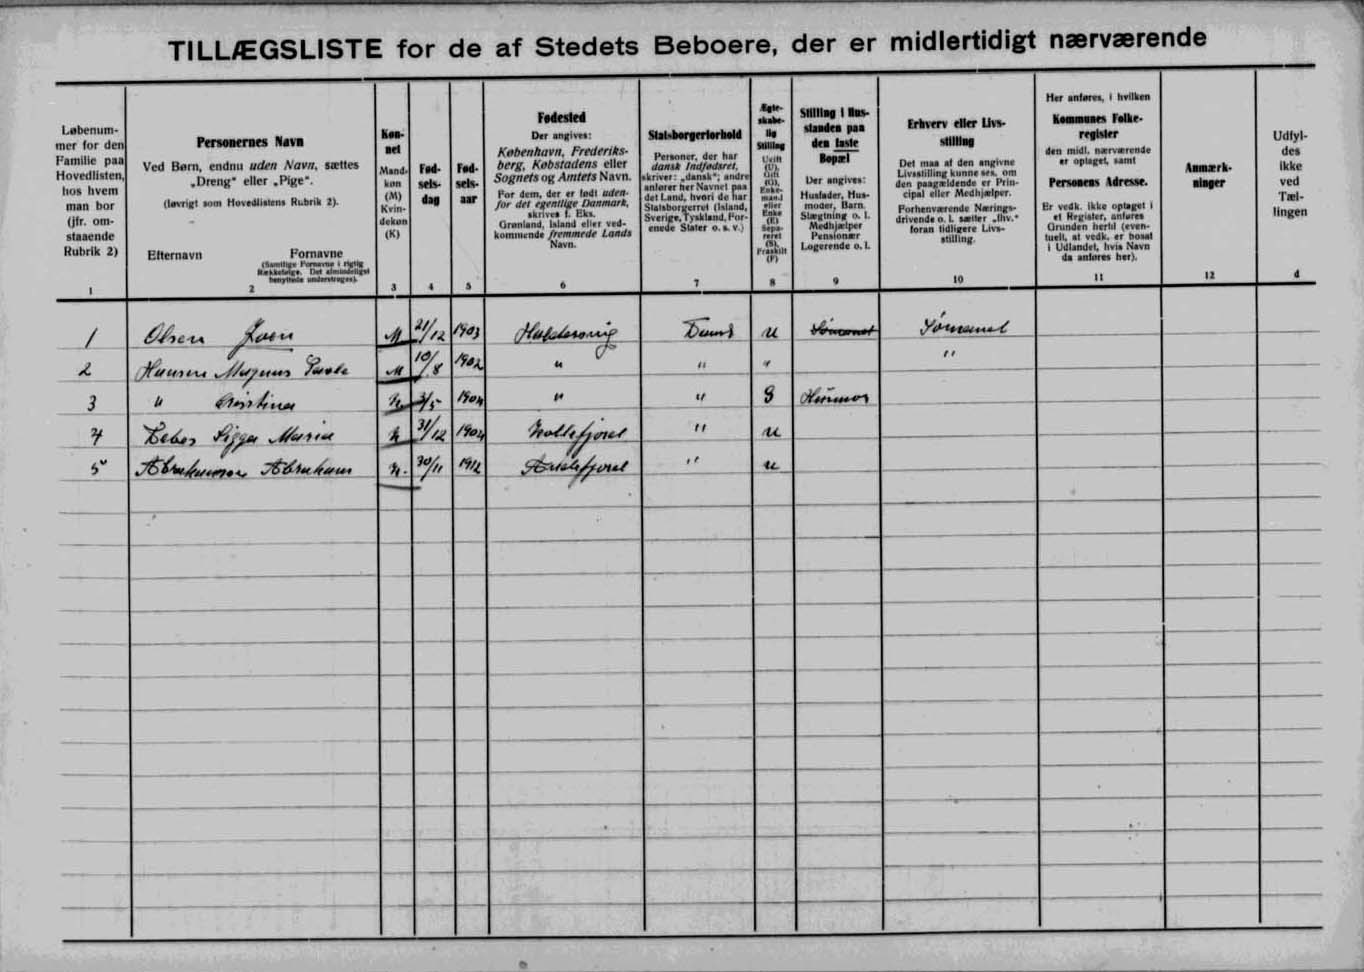 TILLÆGSLISTE for de af Stedets Beboere, der er midlertidigt nærværende
Løbenum-
mer for den
Familie paa
Hovedlisten,
hos hvem
man bor
(jfr. om-
staaende
Rubrik 2)
1
Personernes Navn
Ved Børn, endnu uden Navn, sættes
„Dreng" eller „Pige".
(Iøvrigt som Hovedlistens Rubrik 2).
Efternavn Fornavne
(Samtlige Fornavne i rigtig
Rækkefølge. Det almindeligst
benyttede understreges).
2
Køn-
net
Mand-
køn
(M)
Kvin-
dekøn
(K)
3
Fød-
sels-
dag
4
Fød-
sels-
aar
5
Fødested
Der angives:
København, Frederiks-
berg, Købstadens eller
Sognets og Amtets Navn.
For dem, der er født uden-
for det egentlige Danmark,
skrives f. Eks.
Grønland, Island eller ved-
kommende fremmede Lands
Navn.
6
Statsborgerforhold
Personer, der har
dansk Indfødsret,
skriver: „dansk"; andre
anfører her Navnet paa
det Land, hvori de har
Statsborgerret (Island,
Sverige, Tyskland, For-
enede Stater o. s. v.)
7
Ægte-
skabe-
lig
Stilling
Ugift
(U),
Gift
(G),
Enke-
mand
eller
Enke
(E)
Sepa-
reret
(S),
Fraskilt
(F)
8
Stilling i Hus-
standen paa
den faste
Bopæl
Der angives:
Husfader, Hus-
moder, Barn,
Slægtning o. l.
Medhjælper
Pensionær
Logerende o. l.
9
Erhverv eller Livs-
stilling
Det maa af den angivne
Livsstilling kunne ses, om
den paagældende er Prin-
cipal eller Medhjælper.
Forhenværende Nærings-
drivende o. l. sætter „fhv."
foran tidligere Livs-
stilling.
10
Her anføres, i hvilken
Kommunes Folke-
register
den midl. nærværende
er optaget, samt
Personens Adresse.
Er vedk. ikke optaget i
et Register, anføres
Grunden hertil (even-
tuelt, at vedk. er bosat
i Udlandet, hvis Navn
da anføres her).
11
Anmærk-
ninger
12
Udfyl-
des
ikke
ved
Tæl-
lingen
d
1 Olsen Joen M 21/12 1903 Haldersvig Dansk U Sømand Sømand
2 Hansen Magnus M 10/8 1902 " " " "
3 " Cristina K. 3/5 1904 " " G Husmor
4 Sigga Maria K 31/12 1904 Kollefjord " U
5 Abrahamsen Abraham 30/11 1912 " U